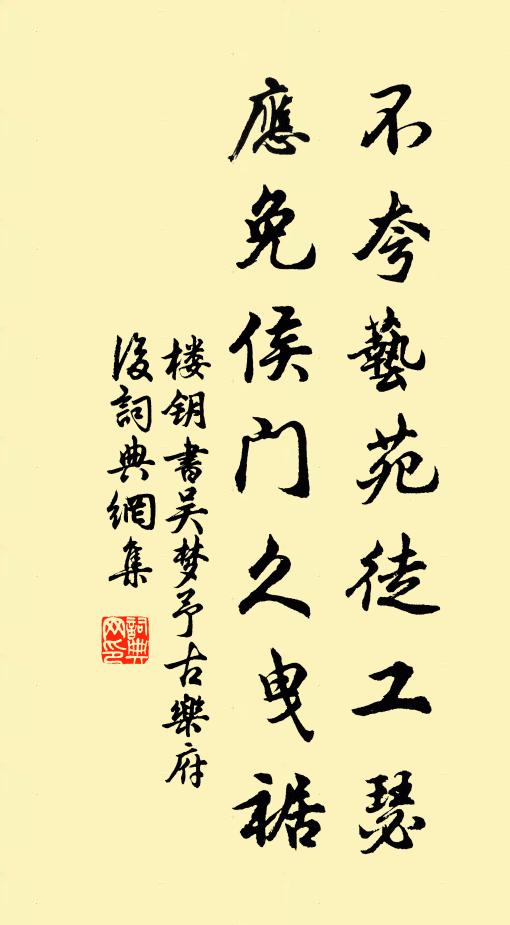 不夸藝苑徒工瑟
應免侯門久曳裾
楼钥書吴梦予古樂府
後詞典網集
詞典
网印